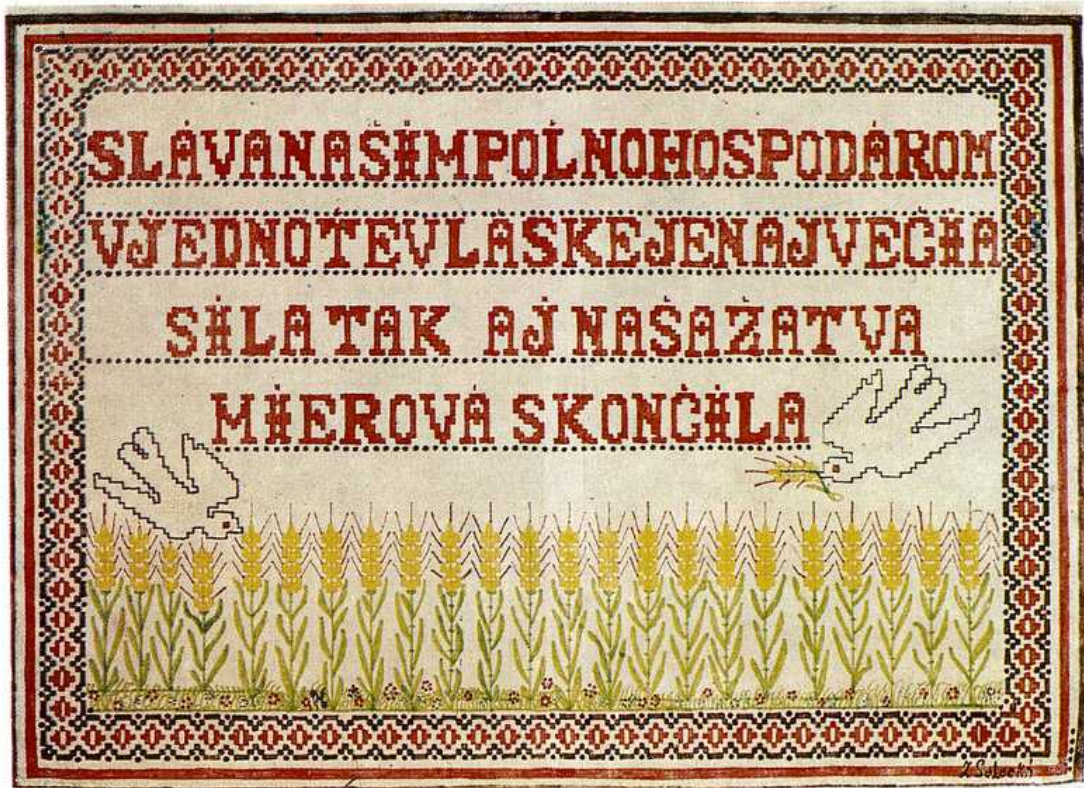 SLÁVA NAŠIM POĽNOHOSPODÁROM
V JEDNOTE V LÁSKE JE NAJVEČIA
SILA TAK AJ NAŠA ŽATVA
MIEROVÁ SKONČILA